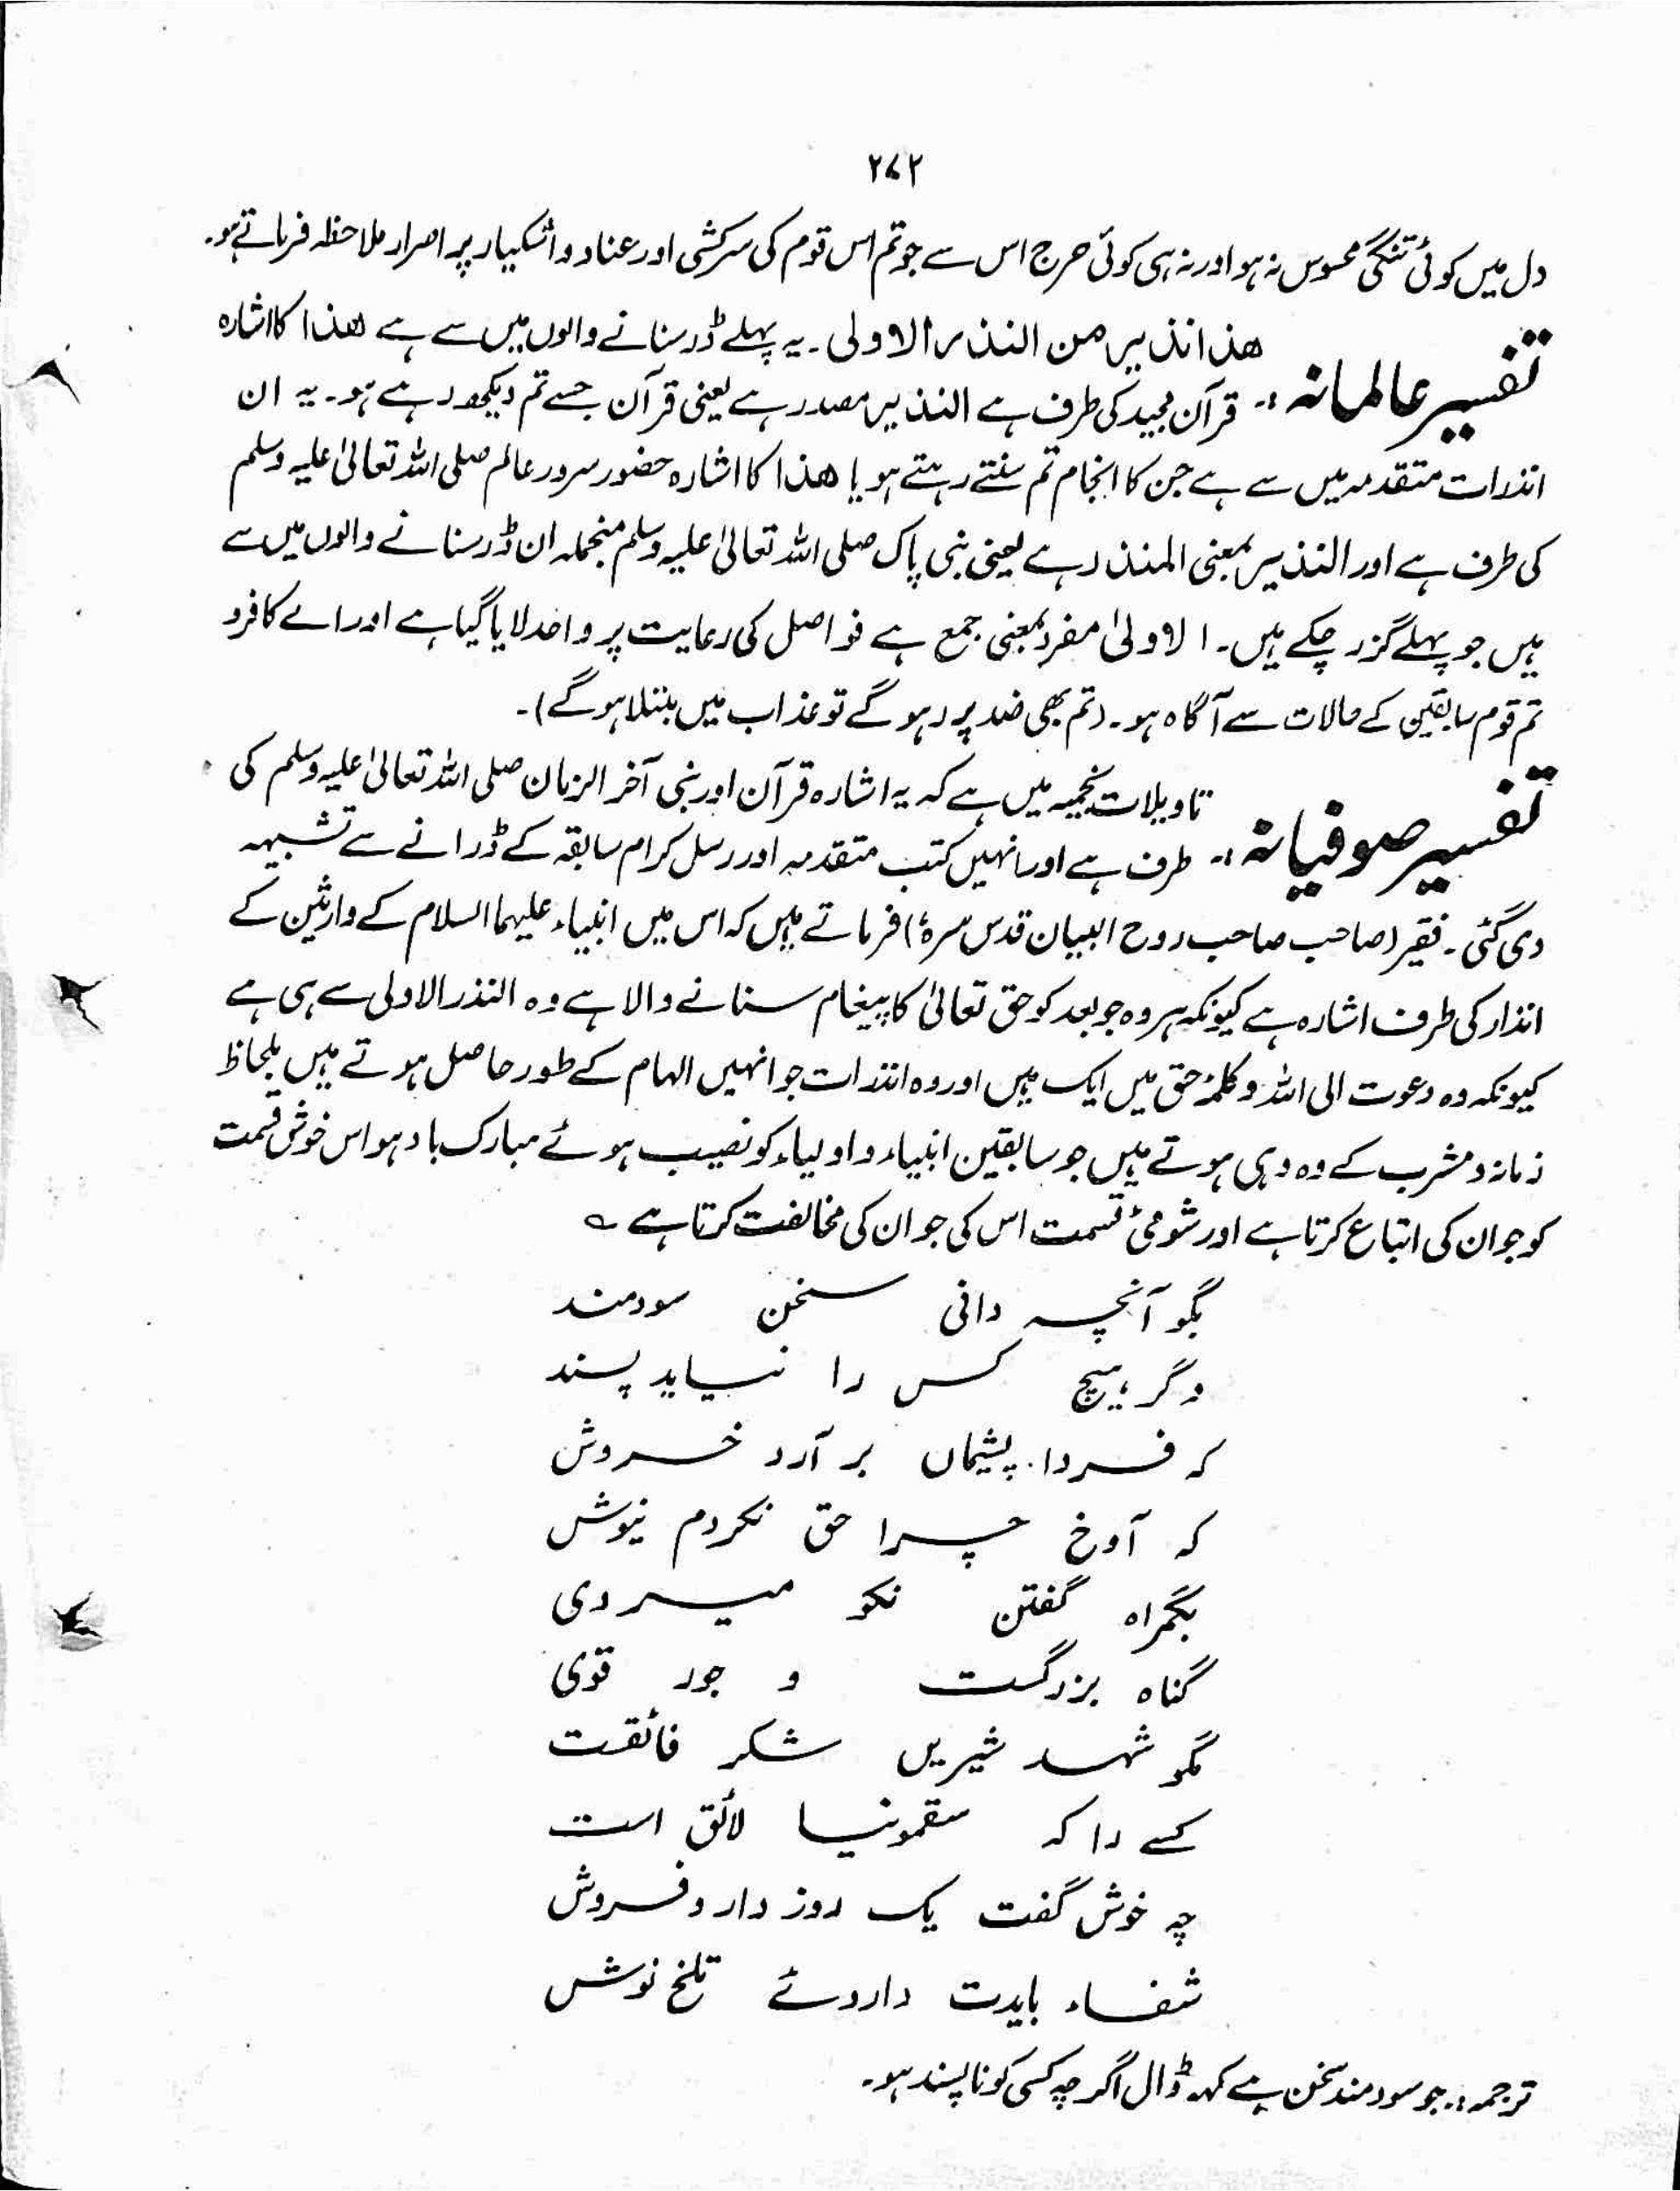 ۲۷۲
دل میں کوئی تنگی محسوس نہ ہو اور نہ ہی کوئی حرج اس سے جو تم اس قوم کی سرکشی اور عناد و اشکبار پر اصرار ملاحظہ فرماتے ہو۔
ھذا نذیر من النذر الاولی۔ یہ پہلے ڈر سنانے والوں میں سے ہے ھذا کا اشارہ
تفسیر عالمانہ :۔ قرآن مجید کی طرف ہے النذیر مصدر ہے یعنی قرآن جسے تم دیکھ رہے ہو۔ یہ ان
انذرات متقدمہ میں سے ہے جن کا انجام تم سنتے رہتے ہو یا ھذا کا اشارہ حضور سرور عالم صلی اللہ تعالیٰ علیہ وسلم
کی طرف ہے اور النذیر بمعنی المنذر ہے یعنی نبی پاک صلی اللہ تعالیٰ علیہ وسلم منجملہ ان ڈر سنانے والوں میں سے
ہیں جو پہلے گزر چکے ہیں۔ الاولیٰ مفرد بمعنی جمع ہے فواصل کی رعایت پر واحد لایا گیا ہے اور اے کافرو
تم قوم سابقین کے حالات سے آگاہ ہو۔ (تم بھی ضد پر رہو گے تو عذاب میں مبتلا ہو گے)۔
تاویلات نجمیہ میں ہے کہ یہ اشارہ قرآن اور نبی آخر الزمان صلی اللہ تعالیٰ علیہ وسلم کی
تفسیر صوفیانہ :۔ طرف ہے اور انہیں کتب متقدمہ اور رسل کرام سابقہ کے ڈرانے سے تشبیہہ
دی گئی۔ فقیر (صاحب صاحب روح البیان قدس سرہٗ) فرماتے ہیں کہ اس میں انبیاء علیہما السلام کے وارثین کے
انذار کی طرف اشارہ ہے کیونکہ ہر وہ جو بعد کو حق تعالیٰ کا پیغام سنانے والا ہے وہ النذر الاولی سے ہی ہے
کیونکہ وہ دعوت الی اللہ و کلمۂ حق میں ایک ہیں اور وہ انذرات جو انہیں الہام کے طور حاصل ہوتے ہیں بلحاظ
زمانہ و مشرب کے وہ وہی ہوتے ہیں جو سابقین انبیاء و اولیاء کو نصیب ہوئے مبارک باد ہو اس خوش قسمت
کو جو ان کی اتباع کرتا ہے اور شومیٔ قسمت اس کی جو ان کی مخالفت کرتا ہے ؎
بگو آنچہ دانی سخن سودمند
وگر ہیچ کس را نیاید پسند
کہ فردا پشیماں بر آرد خروش
کہ آوخ چرا حق نکردم نیوش
بگمراہ گفتن نکو میردی
گناہ بزرگست و جور قوی
مگو شہد شیریں شکر فائقست
کسے را کہ سقمونیا لائق است
چہ خوش گفت یک روز دارو فروش
شفاء بایدت داروئے تلخ نوش
ترجمہ :۔ جو سودمند سخن ہے کہہ ڈال اگرچہ کسی کو ناپسند ہو۔